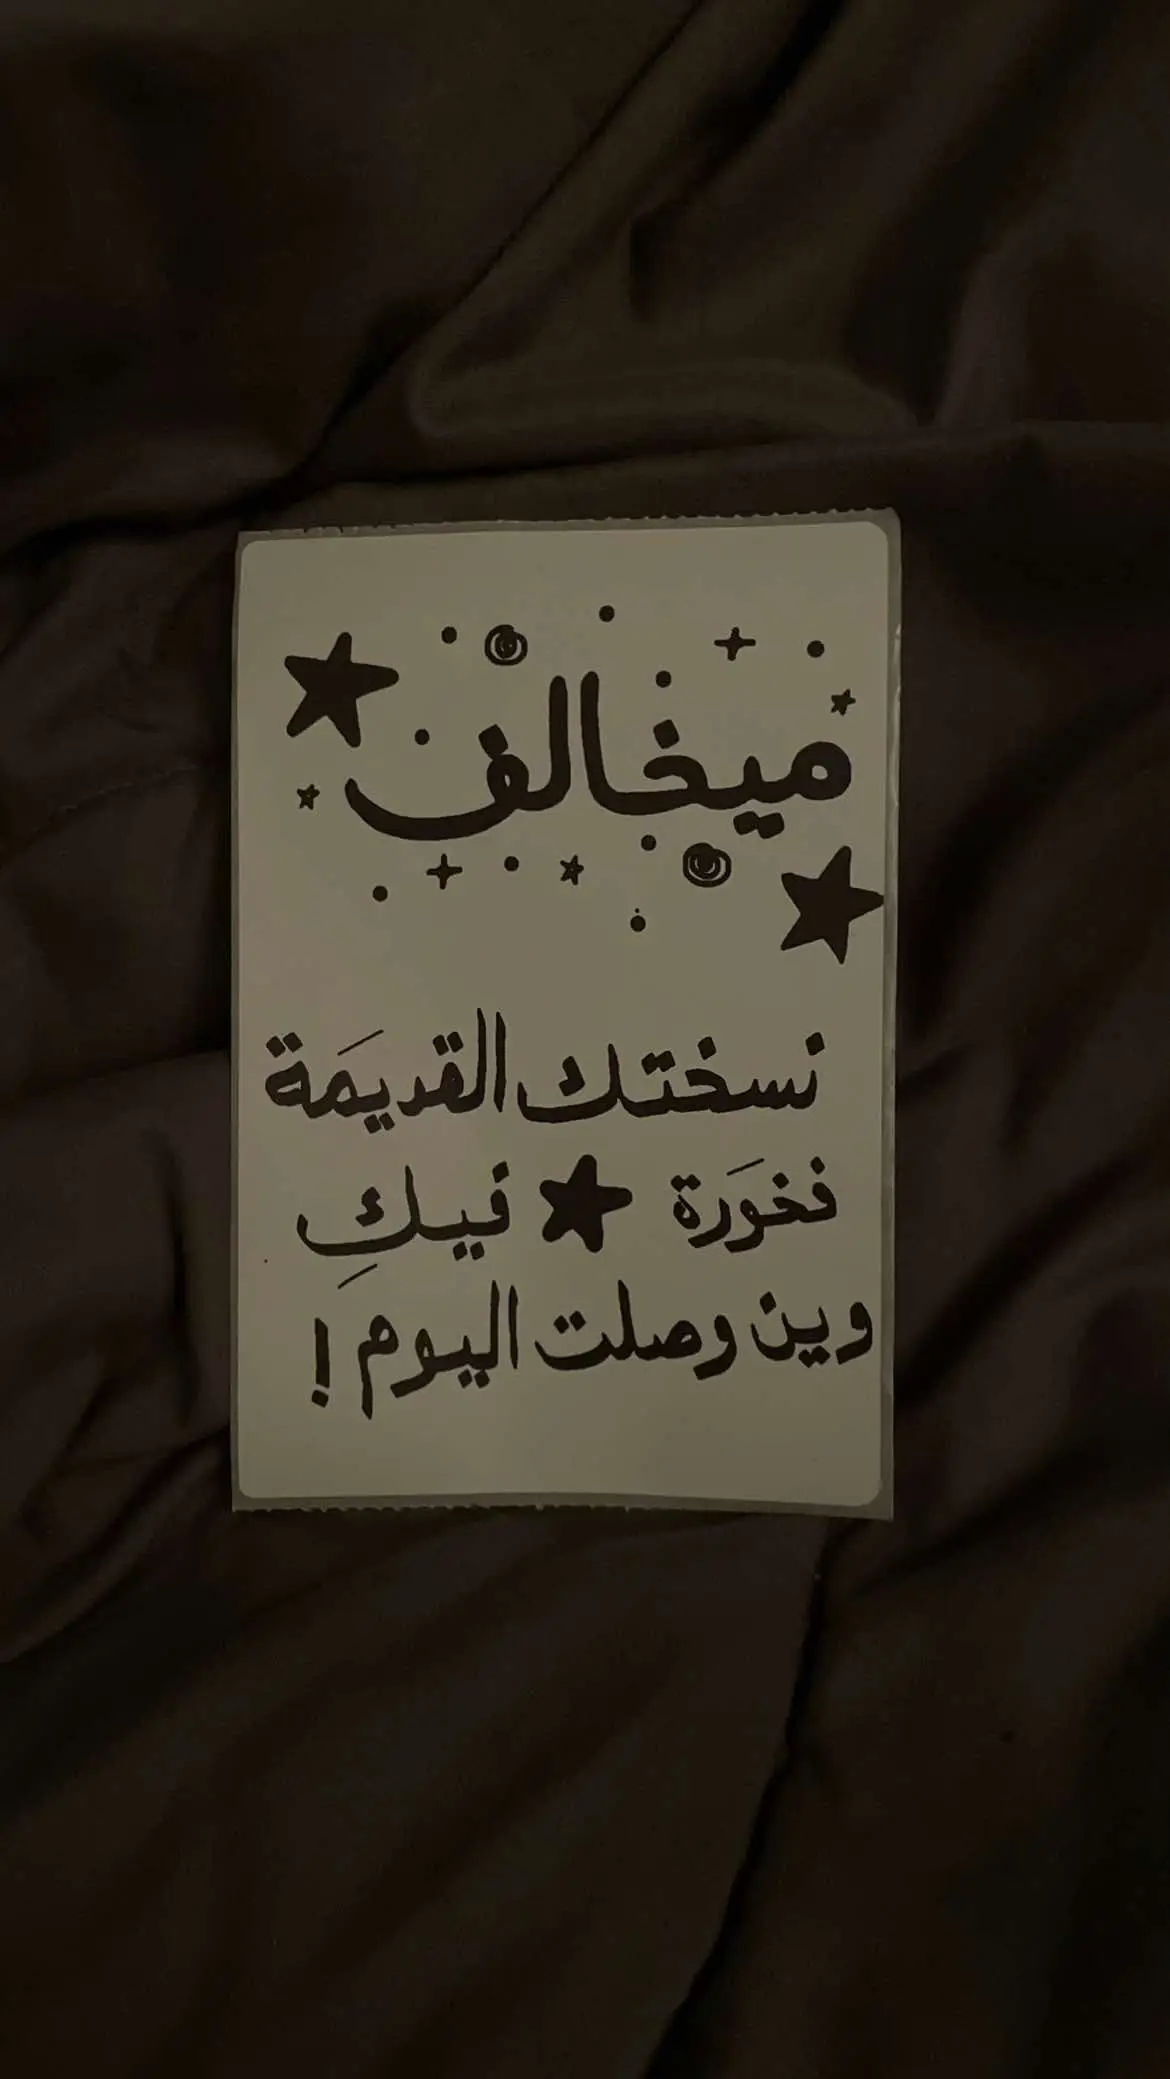 ميخالف
نسختك القديَمة
فخوَرة فيكِ
وين وصلت اليوم!